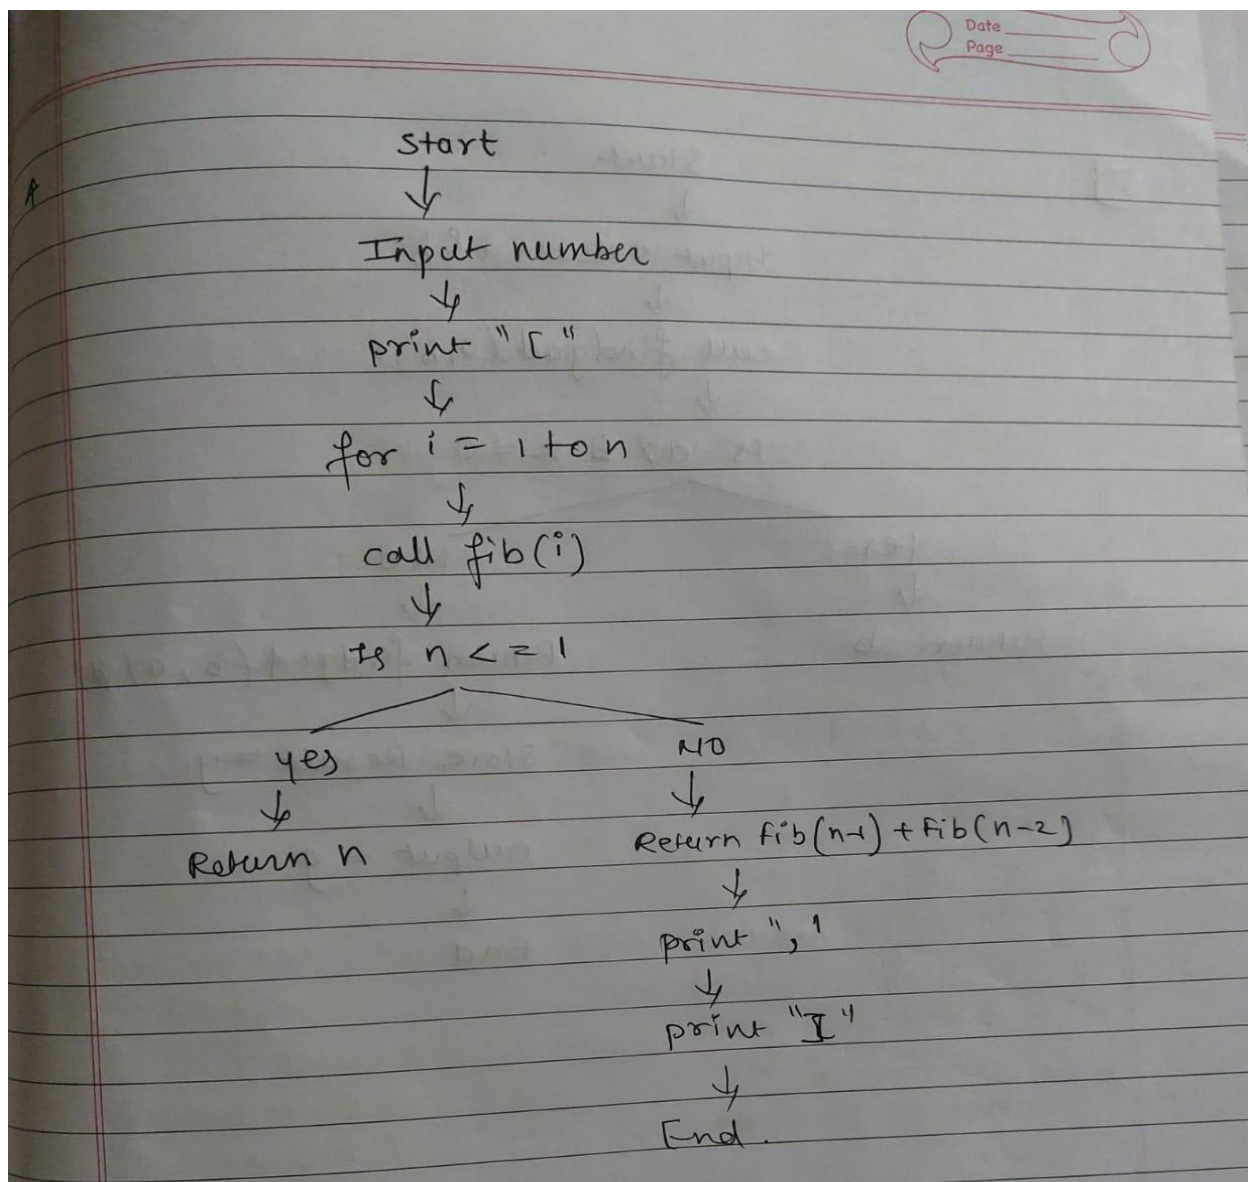 Date
Page
Start
Input number
print "["
for i = 1 to n
call fib(i)
Is n <= 1
yes
NO
Return n
Return fib(n-1) + fib(n-2)
print ",'
print "]"
End.